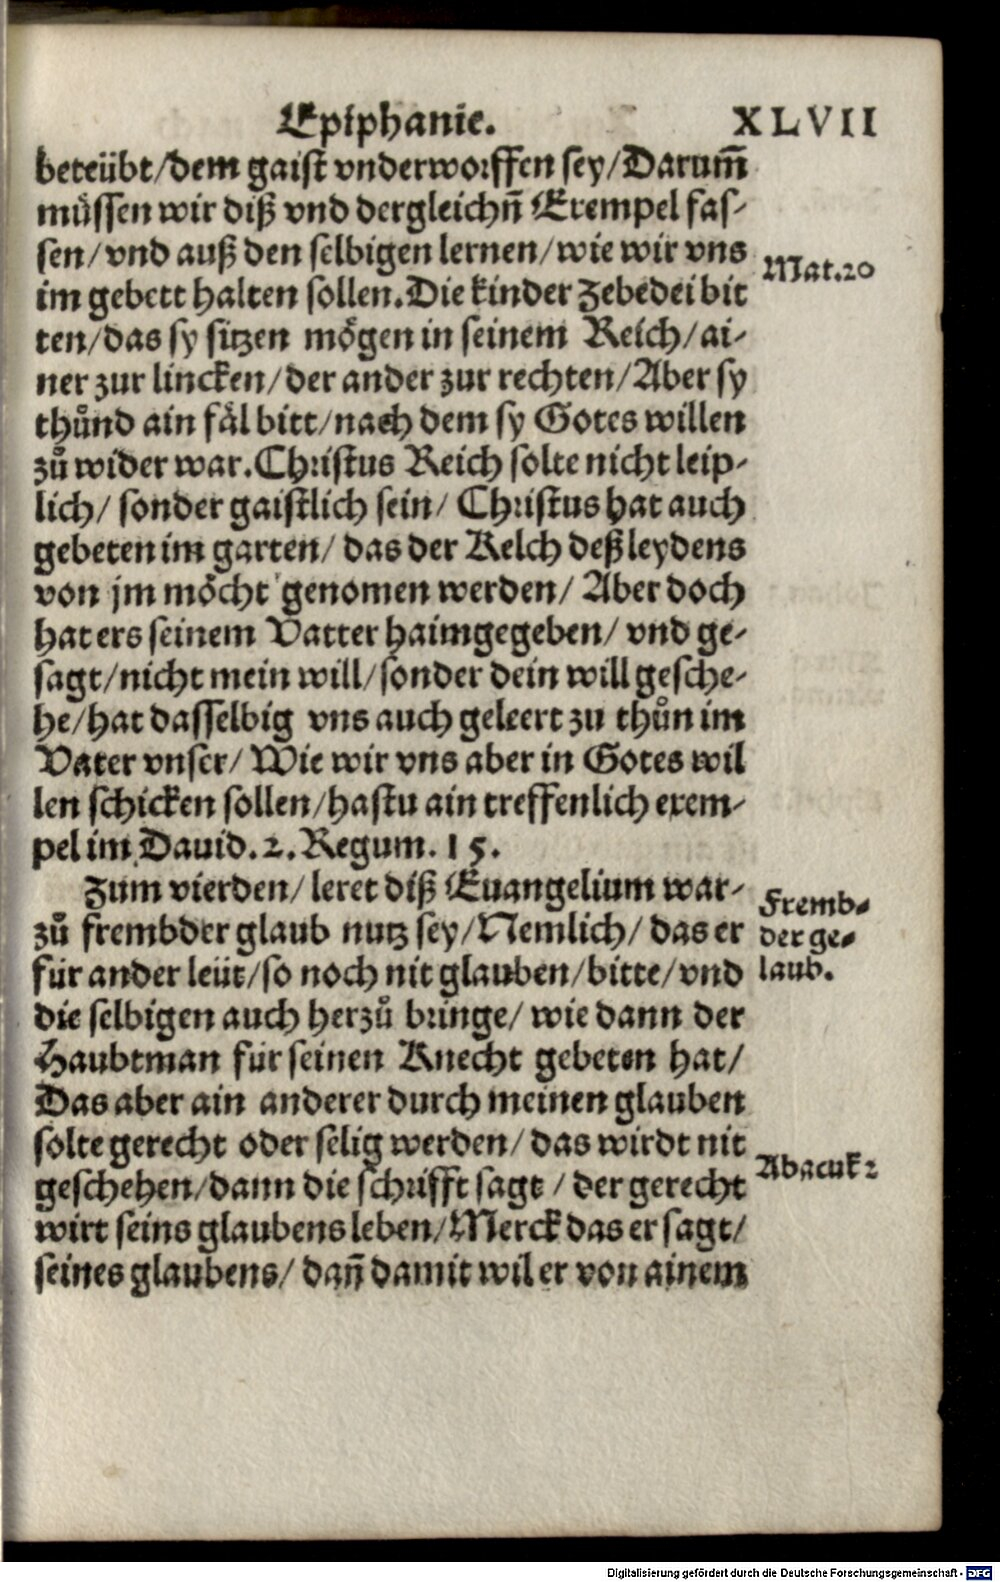 Epiphanie. XLVII
beteübt/dem gaist vnderworffen sey/Darum̄
müssen wir diß vnd dergleichn̄ Exempel fas-
sen/vnd auß den selbigen lernen/wie wir vns
Mat.20
im gebett halten sollen.Die kinder Zebedei bit
ten/das sy sitzen mögen in seinem Reich/ai-
ner zur lincken/der ander zur rechten/Aber sy
thůnd ain fäl bitt/nach dem sy Gotes willen
zů wider war.Christus Reich solte nicht leip-
lich/ sonder gaistlich sein/ Christus hat auch
gebeten im garten/ das der Kelch deß leydens
von jm möcht genomen werden/ Aber doch
hat ers seinem Vatter haimgegeben/ vnd ge-
sagt/nicht mein will/sonder dein will gesche-
he/hat dasselbig vns auch geleert zu thůn im
Vater vnser/ Wie wir vns aber in Gotes wil
len schicken sollen/hastu ain treffenlich exem-
pel im Dauid.2.Regum.15.
Zum vierden/ leret diß Euangelium war-
zů frembder glaub nutz sey/Nemlich/ das er
für ander leüt/so noch nit glauben/bitte/vnd
Fremb-
der ge-
laub.
die selbigen auch herzů bringe/ wie dann der
Haubtman für seinen Knecht gebeten hat/
Das aber ain anderer durch meinen glauben
solte gerecht oder selig werden/ das wirdt nit
Abacuk 2
geschehen/dann die schrifft sagt / der gerecht
wirt seins glaubens leben/Merck das er sagt/
seines glaubens/ dan̄ damit wil er von ainem
Digitalisierung gefördert durch die Deutsche Forschungsgemeinschaft - DFG